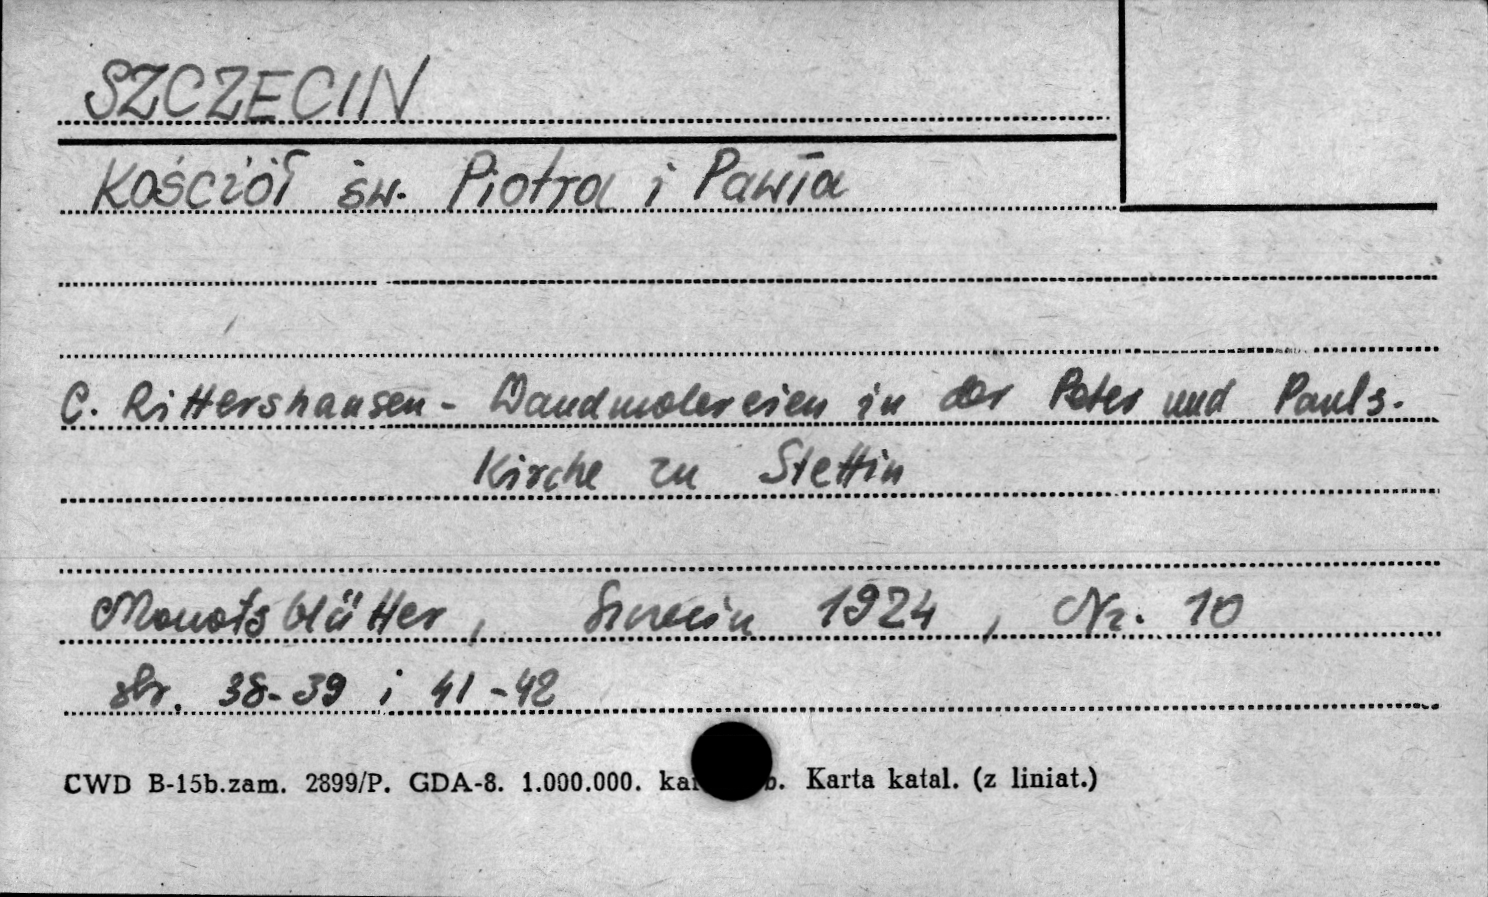 SZCZECIN
Kościół św. Piotra i Pawła
C. Rittershausen - Wandmalereien in der Peter und Pauls.
Kirche zu Stettin
Monatsblätter, 1924, Nr. 10
str. 38-39 i 41-42
CWD B-15b.zam. 2899/P. GDA-8. 1.000.000. Karta katal. (z liniat.)